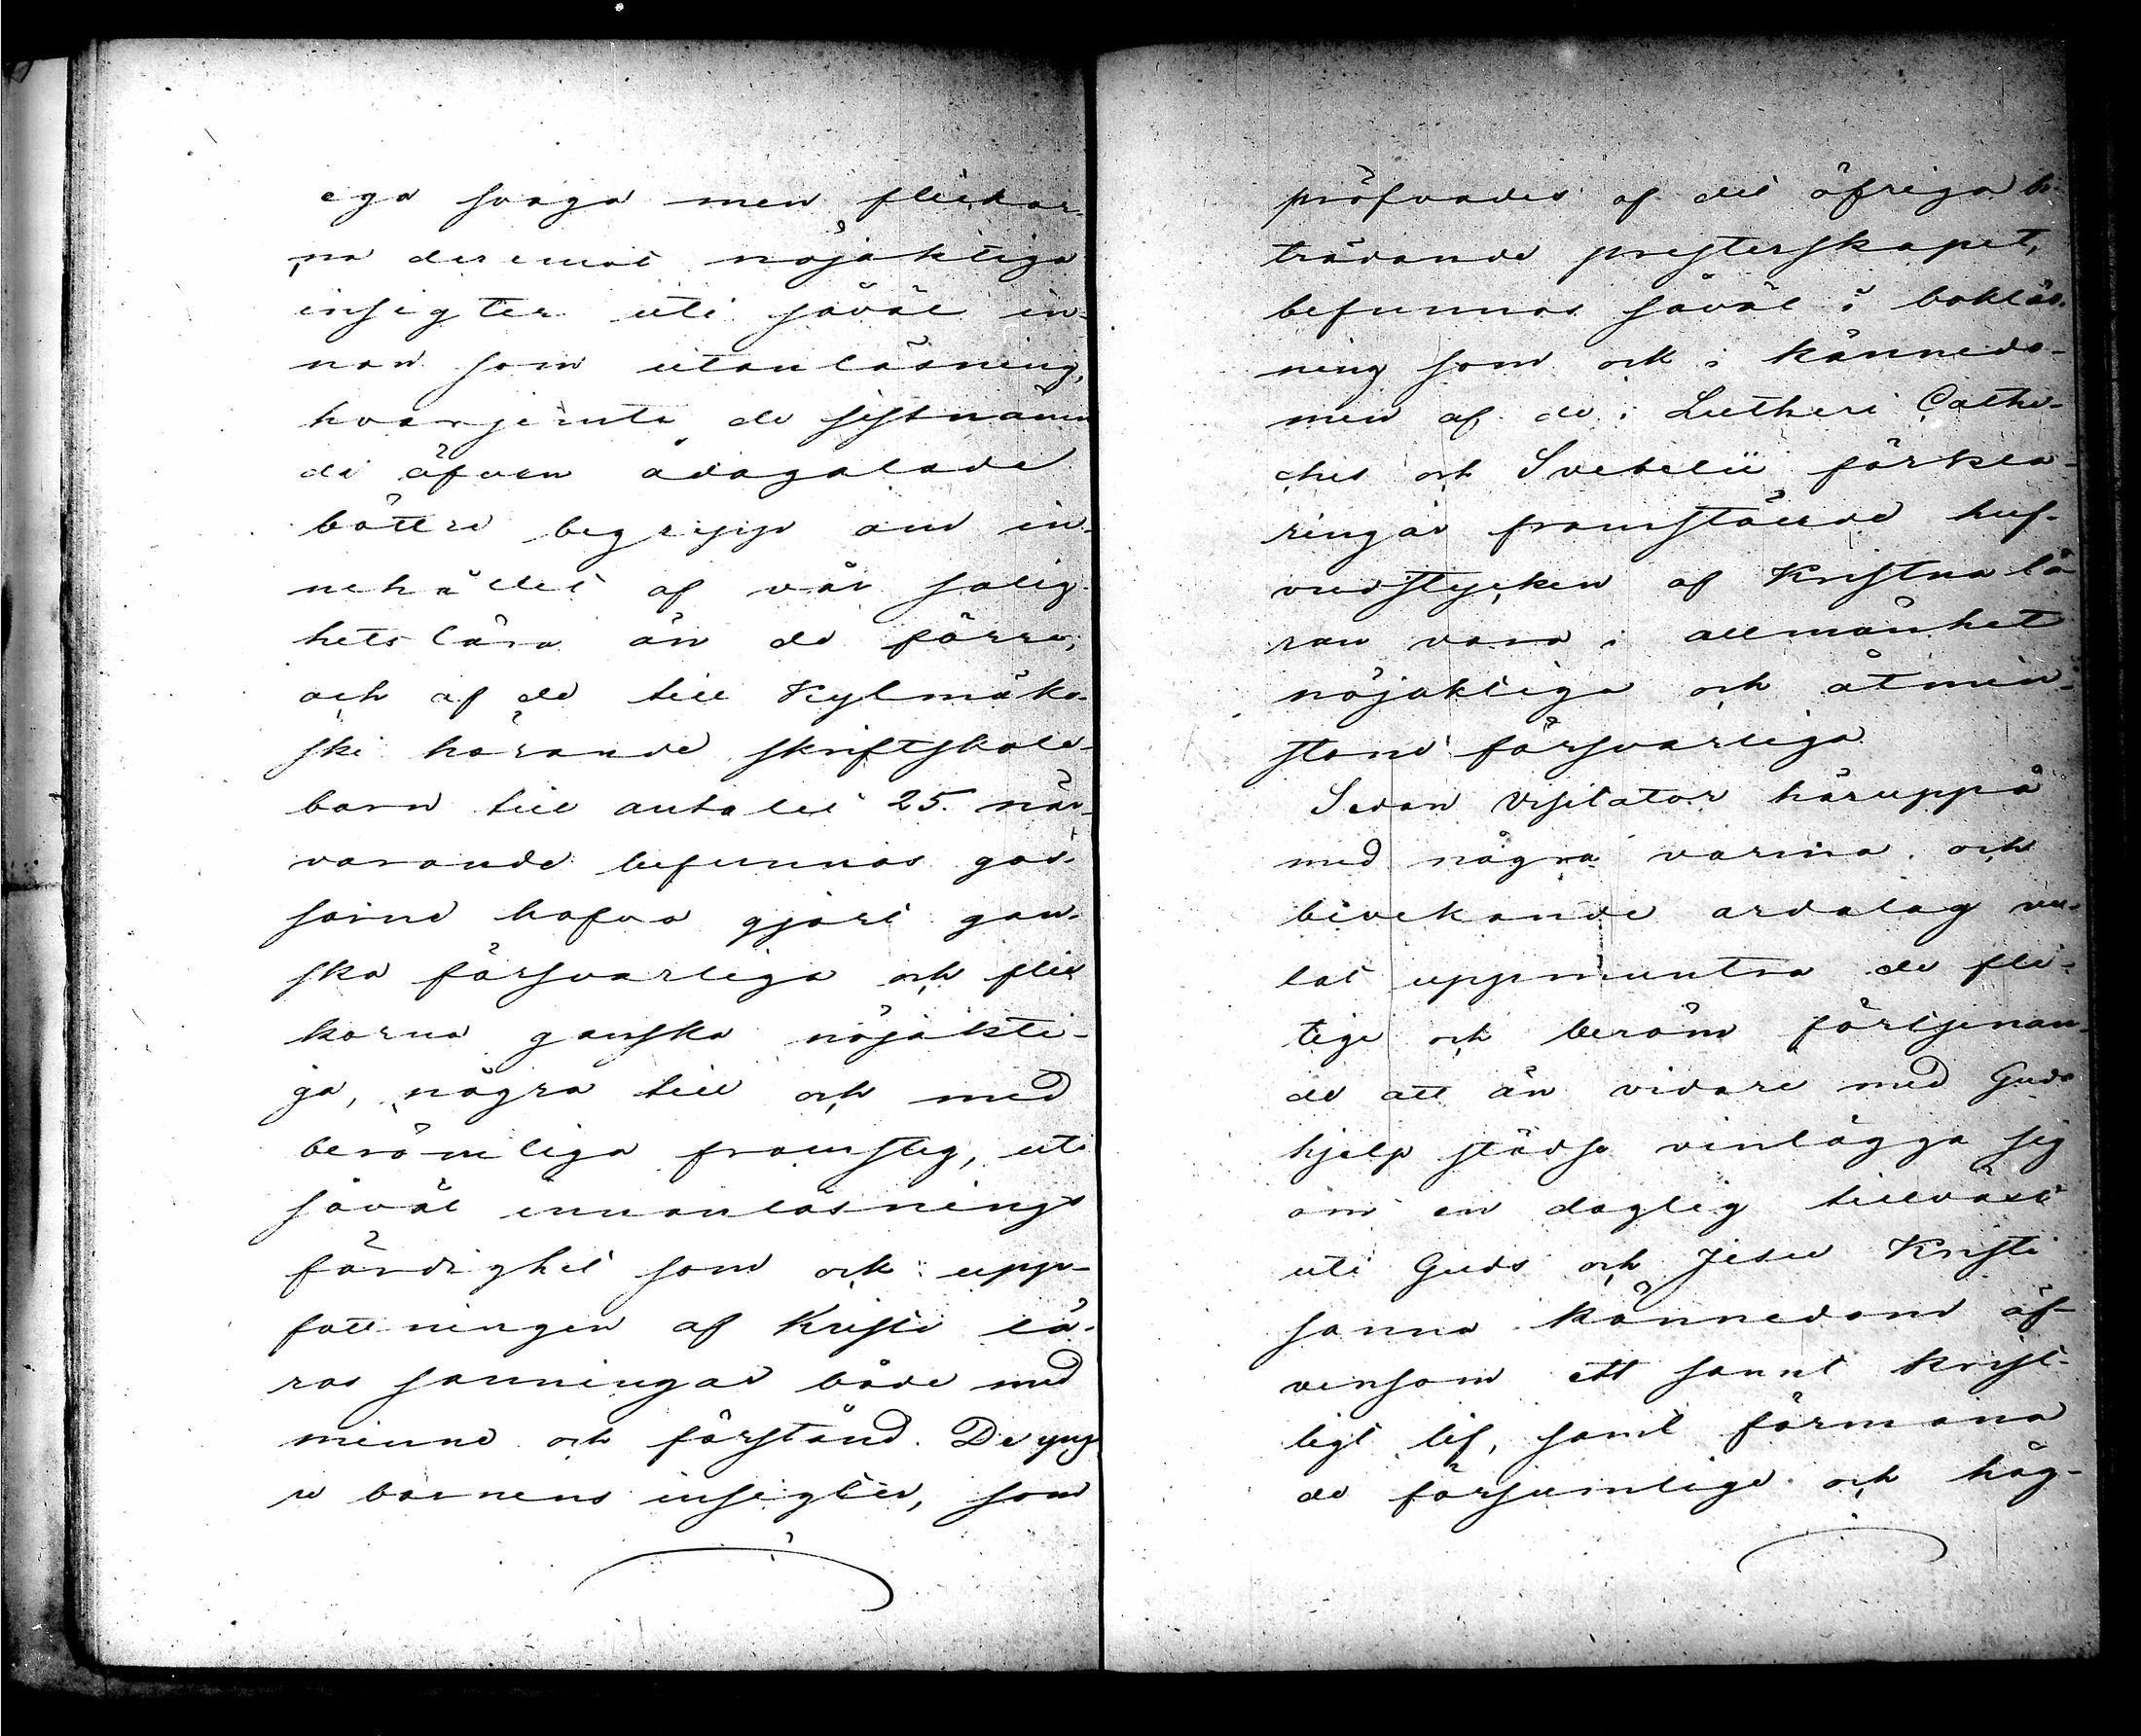 ega svaga men flickor-
na deremot nöjaktiga
insigter uti såväl in-
nan som utanläsning,
hvarjemte de sistnämn
de äfven ådagalade
bättre begrepp om in-
nehållet af vår salig-
hets lära än de förre;
och af de till Kylmäko-
ski hörande skriftskole-
barn till antalet 25. när-
varande befunnos gos-
sarne hafva gjort gan-
ska försvarliga och flic
korna ganska nöjakti-
ga, några till och med
berömliga framsteg, uti
såväl innanläsnings
färdighet som ock i upp-
fattningen af Kristi lä-
ras sanningar både med
minne och förstånd. De yng
re barnens insigter, som
pröfvades af det öfriga bi-
trädande presterskapet,
befunnos såväl i bokläs-
ning som ock i kännedo-
men af de i Lutheri Cathe-
ches och Svebelii förkla-
ringar framstälde huf-
vudstycken af Kristna lä-
ran vara i allmänhet
nöjaktiga och åtmin-
stone försvarliga
Sedan Visitator häruppå
med några varma och
bevekande ordalag vu-
lat uppmuntra de fli-
tige och beröm förtjenan-
de att än vidare med Guds
hjelp städse vinlägga sig
om en daglig tillväxt
uti Guds och Jesu Kristi
sanna kännedom äf-
vensom ett sannt krist-
ligt lif, samt förmana
de försumlige och hög-